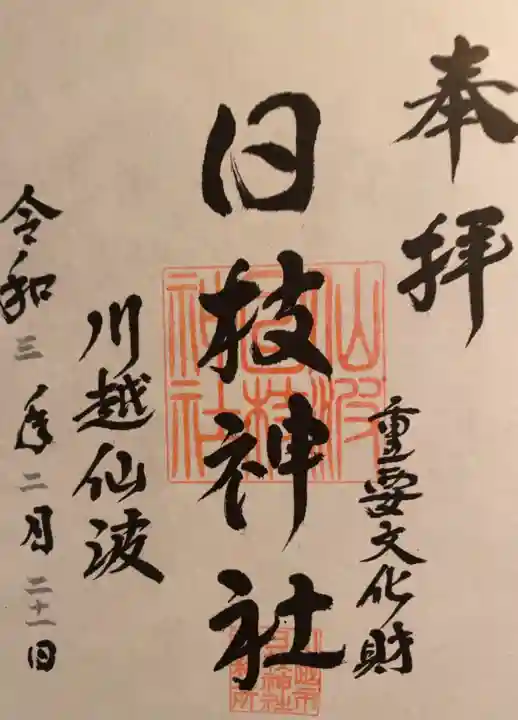 奉拝
重要文化財
日枝神社
仙波
日枝
神社
川越仙波
令和三年二月二十一日